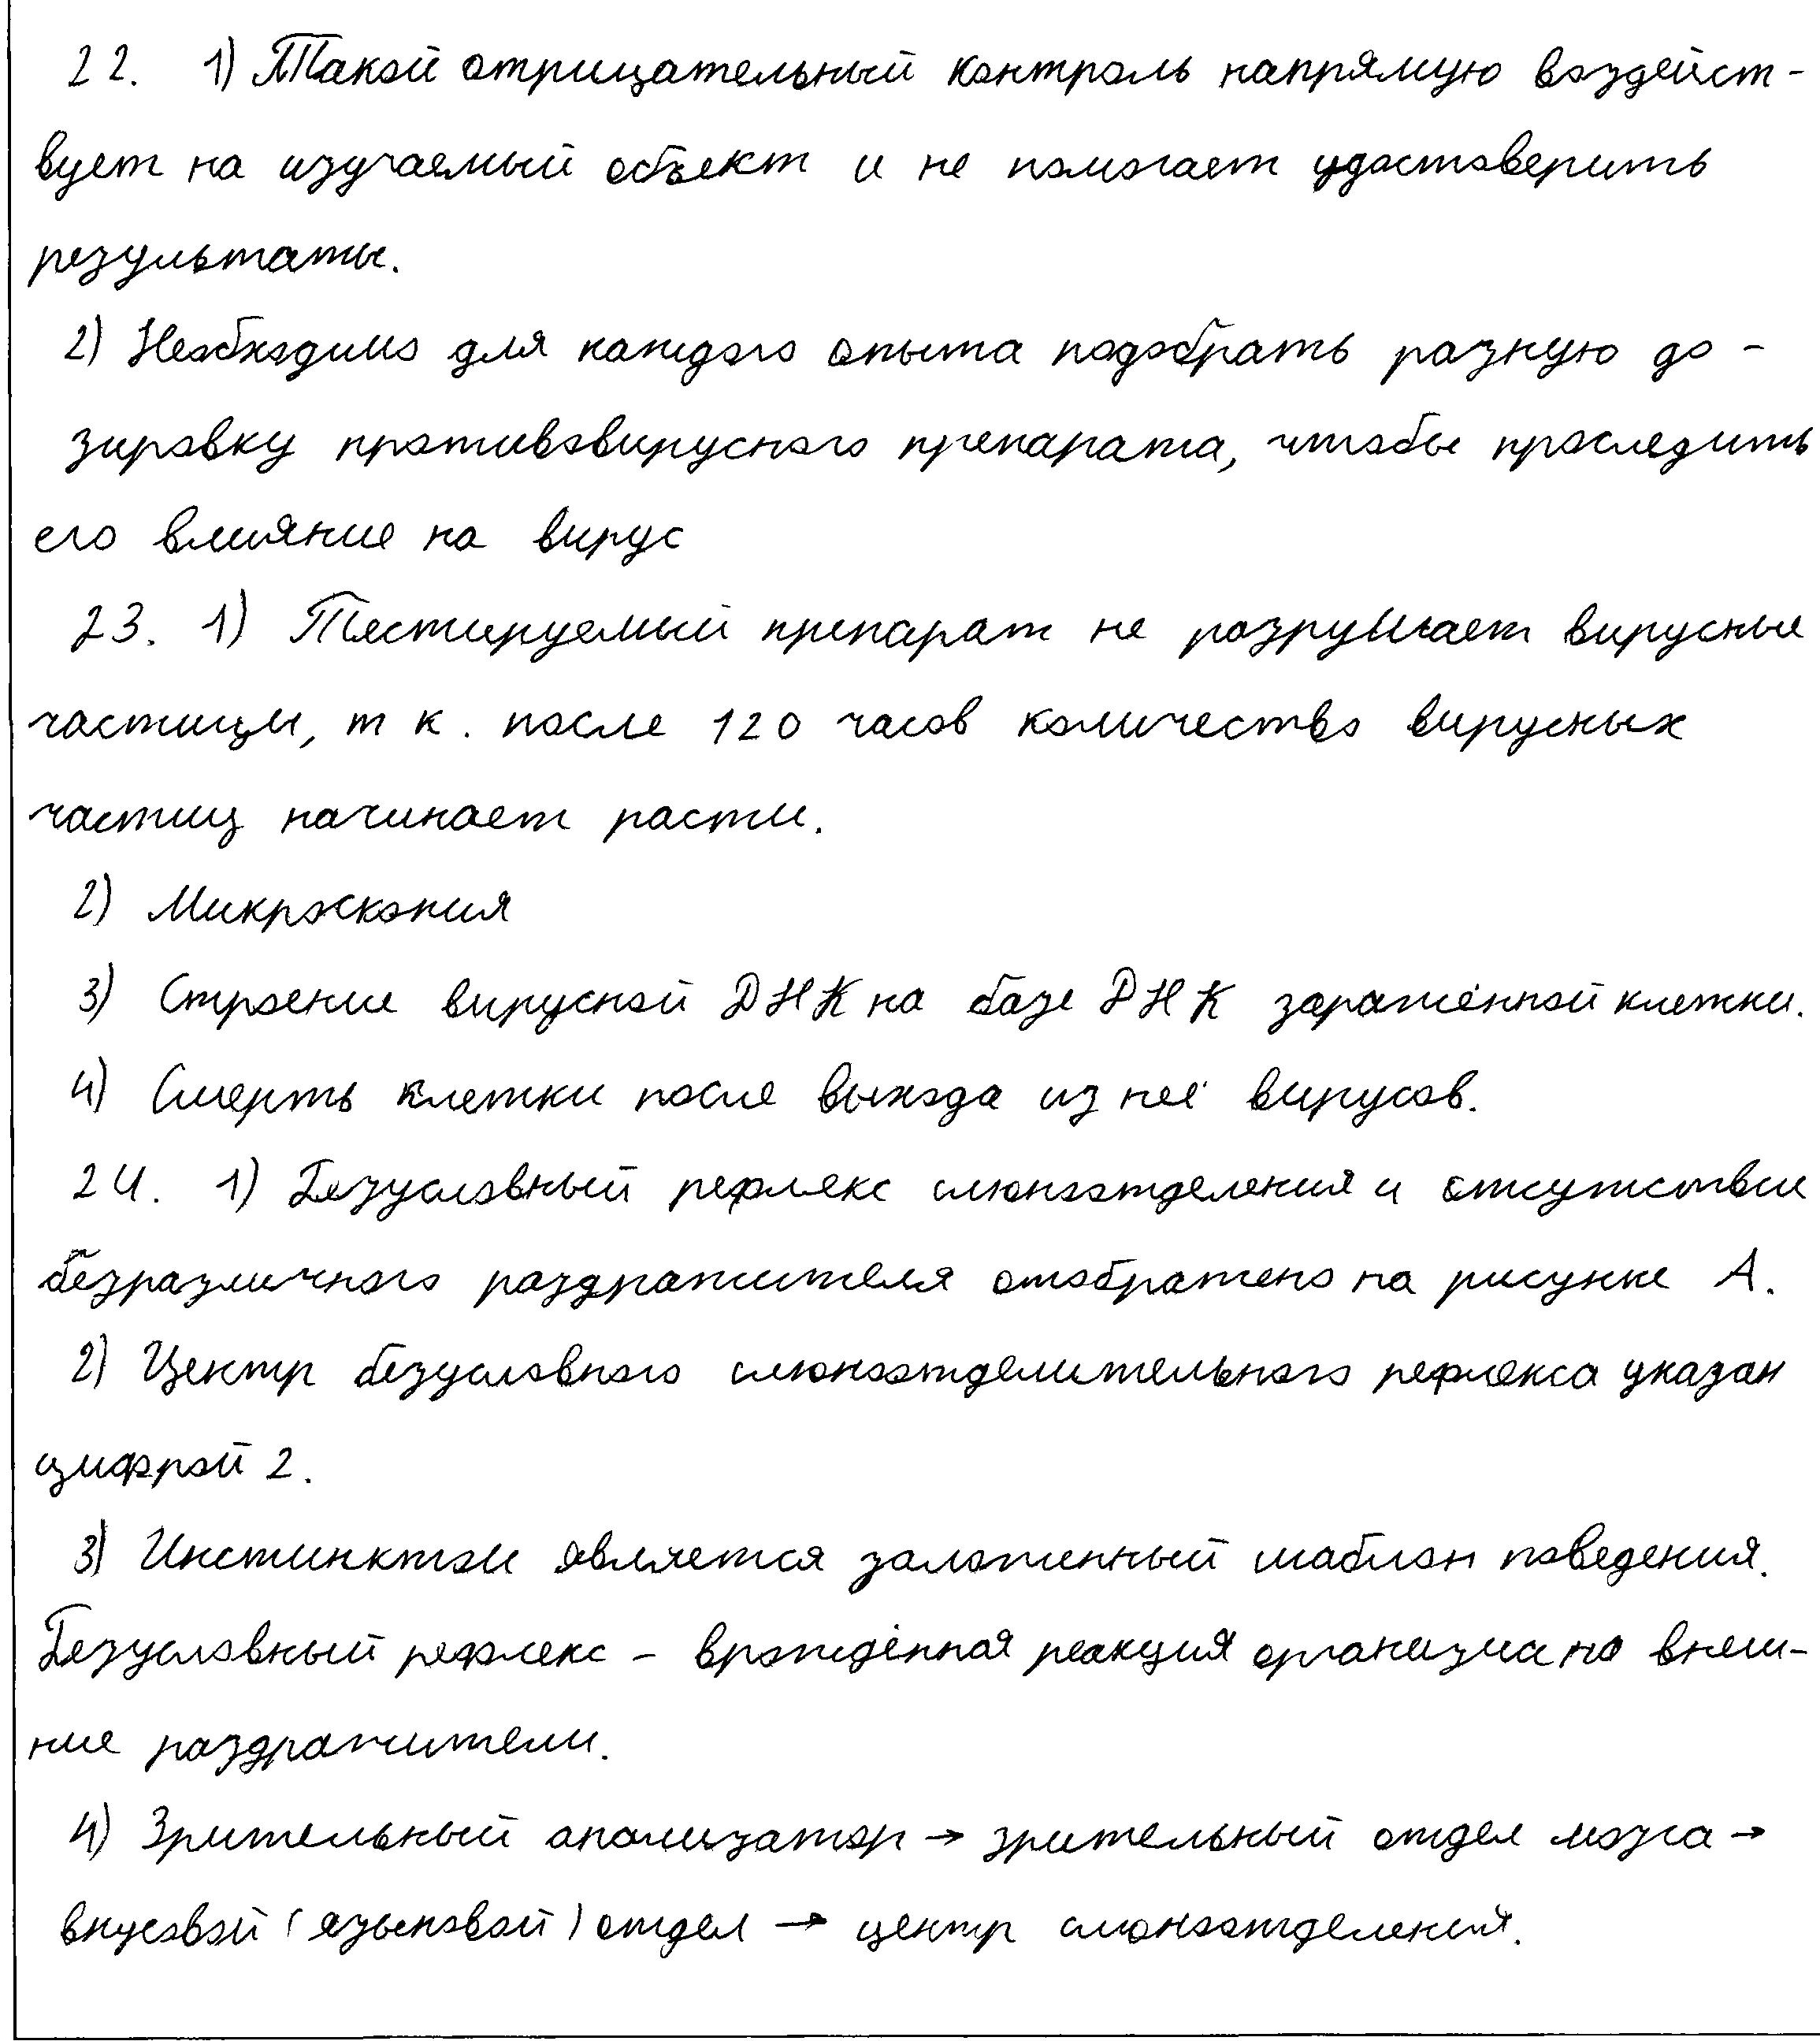 22. 1) Такой отрицательный контроль напрямую воздейст-
вует на изучаемый объект и не помогает удостоверить
результаты.
2) Необходимо для каждого опыта подобрать разную до-
зировку противовирусного препарата, чтобы проследить
его влияние на вирус
23. 1) Тестируемый препарат не разрушает вирусные
частицы, т к. после 120 часов количество вирусных
частиц начинает расти.
2) Микроскопия
3) Строение вирусной ДНК на базе ДНК заражённой клетки.
4) Смерть клетки после выхода из неё вирусов.
24. 1) Безусловный рефлекс слюноотделения и отсутствие
безразличного раздражителя отображено на рисунке А.
2) Центр безусловного слюноотделительного рефлекса указан
цифрой 2.
3) Инстинктом является заложенный шаблон поведения.
Безусловный рефлекс - врождённая реакция организма на внеш-
ние раздражители.
4) Зрительный анализатор → зрительный отдел мозга →
вкусовой (языковой) отдел → центр слюноотделения.